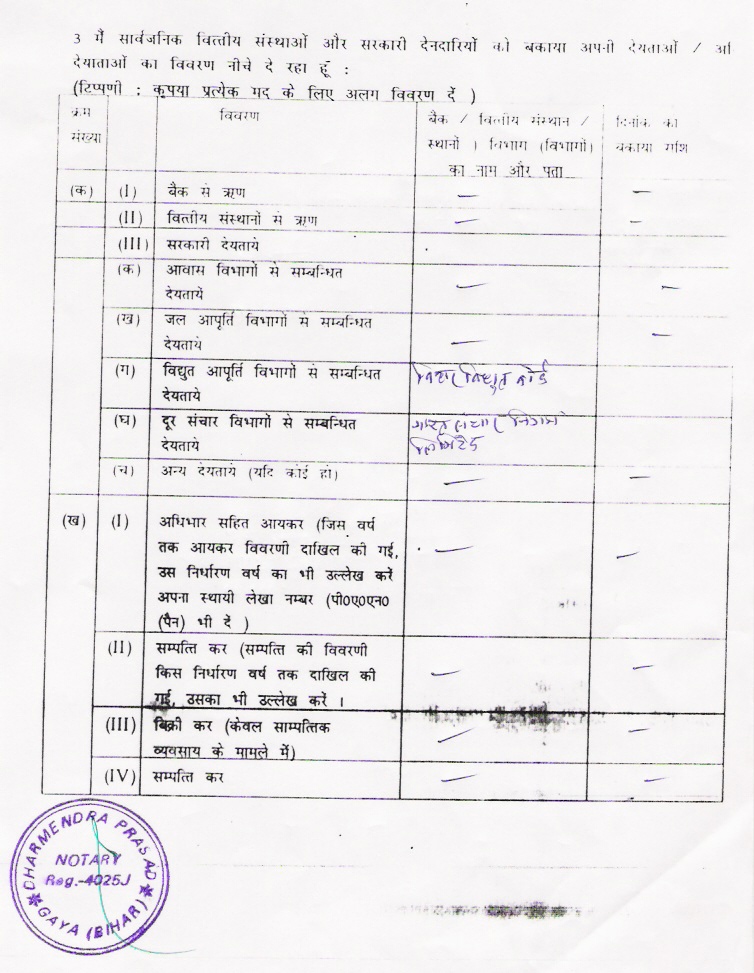 3 मैं सार्वजनिक वित्तीय संस्थाओं और सरकारी देनदारियों को बकाया अपनी देयताओं /
देयाताओं का विवरण नीचे दे रहा हूँ :
(टिप्पणी : कृपया प्रत्येक मद के लिए अलग विवरण दें )
क्रम संख्या
विवरण
बैंक / वित्तीय संस्थान /
स्थानों । विभाग (विभागों)
का नाम और पता
दिनांक को
बकाया राशि
(क) (I) बैंक से ऋण — —
(II) वित्तीय संस्थानों से ऋण — —
(III) सरकारी देयताये
(क) आवास विभागों से सम्बन्धित
देयतायें — —
(ख) जल आपूर्ति विभागों से सम्बन्धित
देयताये — —
(ग) विद्युत आपूर्ति विभागों से सम्बन्धित
देयताये
बिहार विद्युत बोर्ड
(घ) दूर संचार विभागों से सम्बन्धित
देयताये
भारत संचार निगम
लिमिटेड
(च) अन्य देयताये (यदि कोई हो) — —
(ख) (I) अधिभार सहित आयकर (जिस वर्ष
तक आयकर विवरणी दाखिल की गई,
उस निर्धारण वर्ष का भी उल्लेख करें
अपना स्थायी लेखा नम्बर (पी0ए0एन0
(पैन) भी दें ) — —
(II) सम्पत्ति कर (सम्पत्ति की विवरणी
किस निर्धारण वर्ष तक दाखिल की
गई, उसका भी उल्लेख करें । — —
(III) बिक्री कर (केवल साम्पत्तिक
व्यवसाय के मामले में) — —
(IV) सम्पत्ति कर — —
DHARMENDRA PRASAD
NOTARY
Reg.-4025J
GAYA (BIHAR)